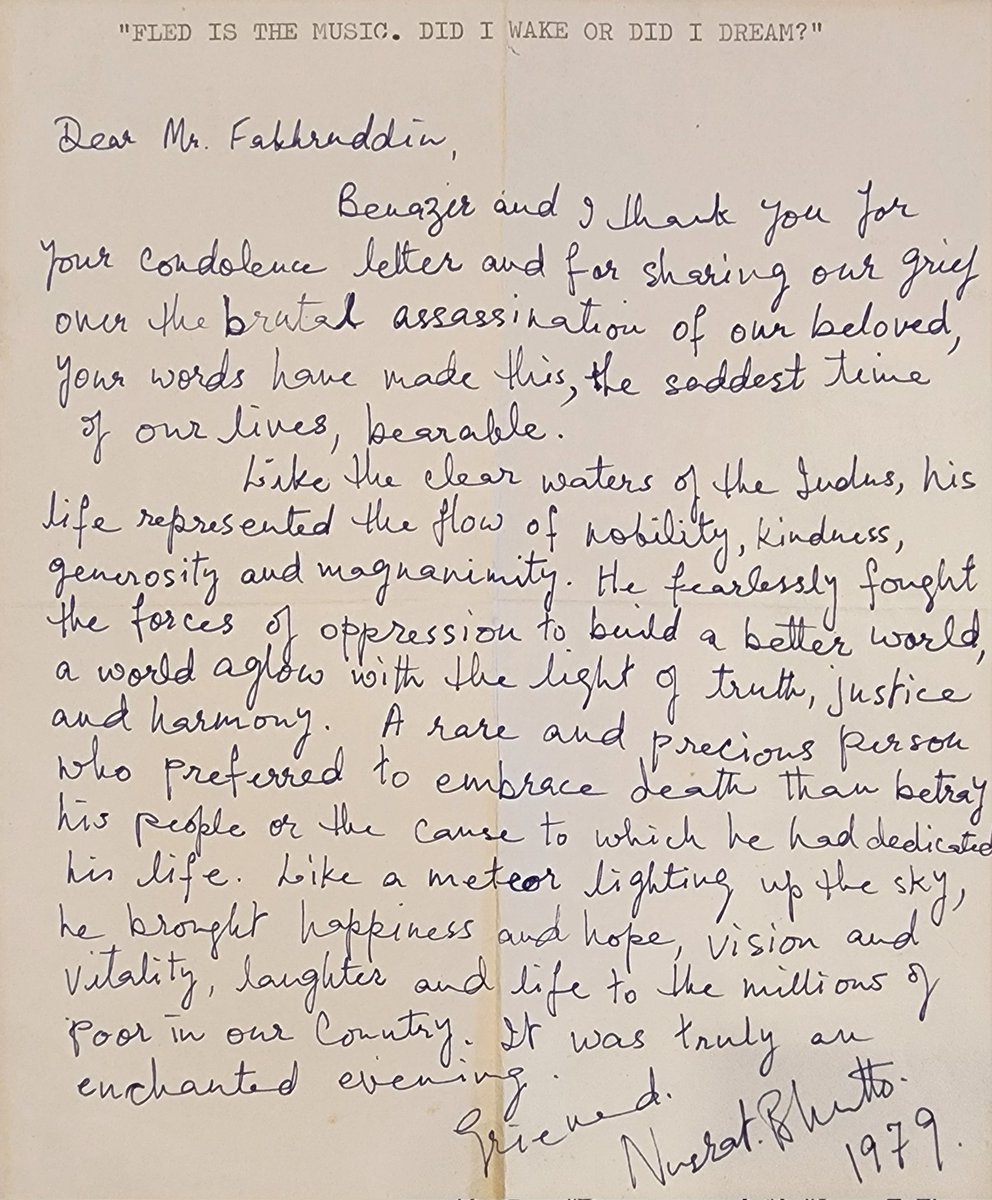 "FLED IS THE MUSIC. DID I WAKE OR DID I DREAM?"
Dear Mr. Fakhruddin,
Benazir and I thank you for
your condolence letter and for sharing our grief
over the brutal assassination of our beloved,
your words have made this, the saddest time
of our lives, bearable.
Like the clear waters of the Indus, his
life represented the flow of nobility, kindness,
generosity and magnanimity. He fearlessly fought
the forces of oppression to build a better world,
a world aglow with the light of truth, justice
and harmony. A rare and precious person
who preferred to embrace death than betray
his people or the cause to which he had dedicated
his life. Like a meteor lighting up the sky,
he brought happiness and hope, vision and
vitality, laughter and life to the millions of
poor in our Country. It was truly an
enchanted evening.
Grieved.
Nusrat. Bhutto.
1979.